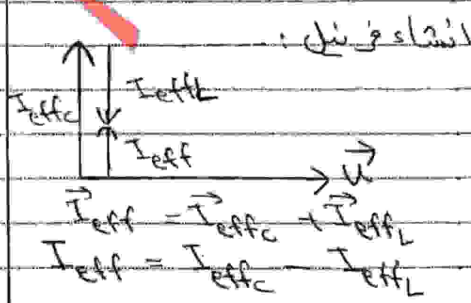 انشاء فرينل :
I_effc I_effL
I_eff
u⃗
I⃗_eff = I⃗_effc + I⃗_effL
I_eff = I_effc - I_effL